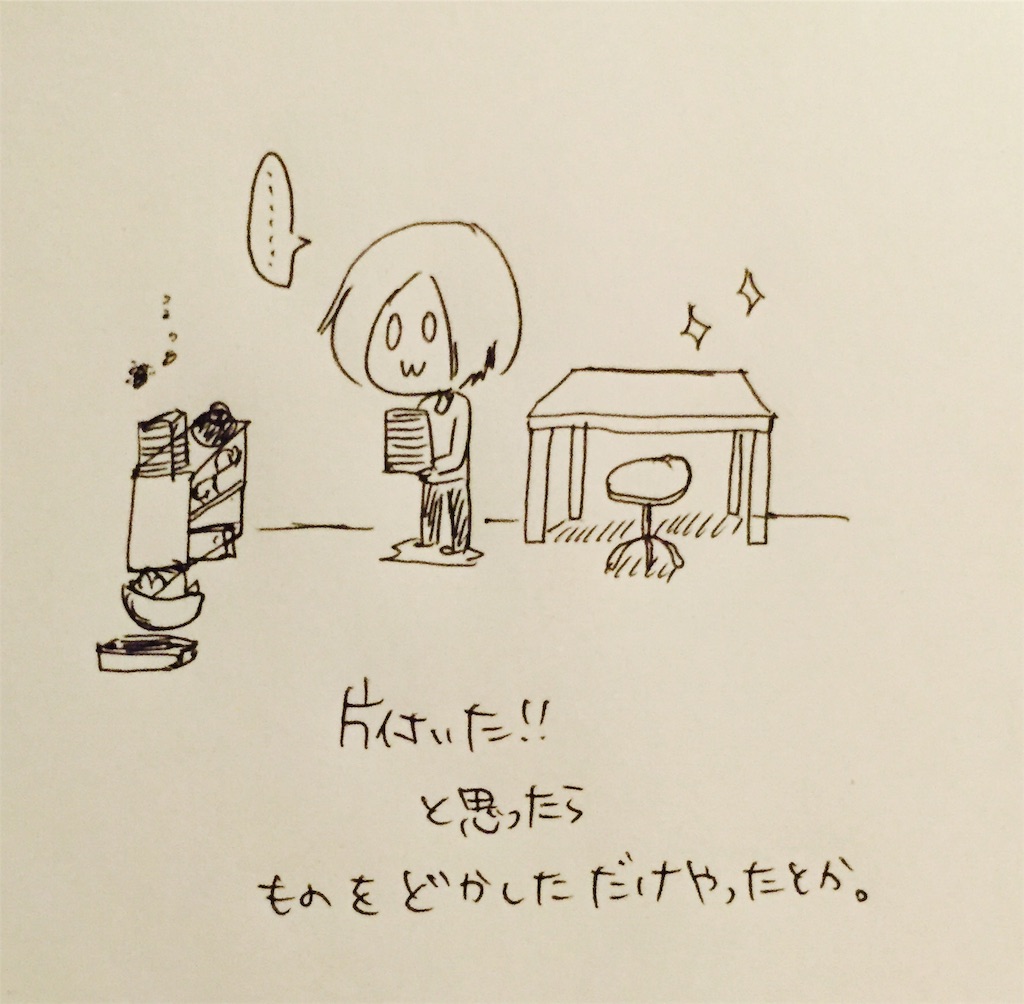 ………
片付いた!!
と思ったら
ものをどかしただけやったとか。